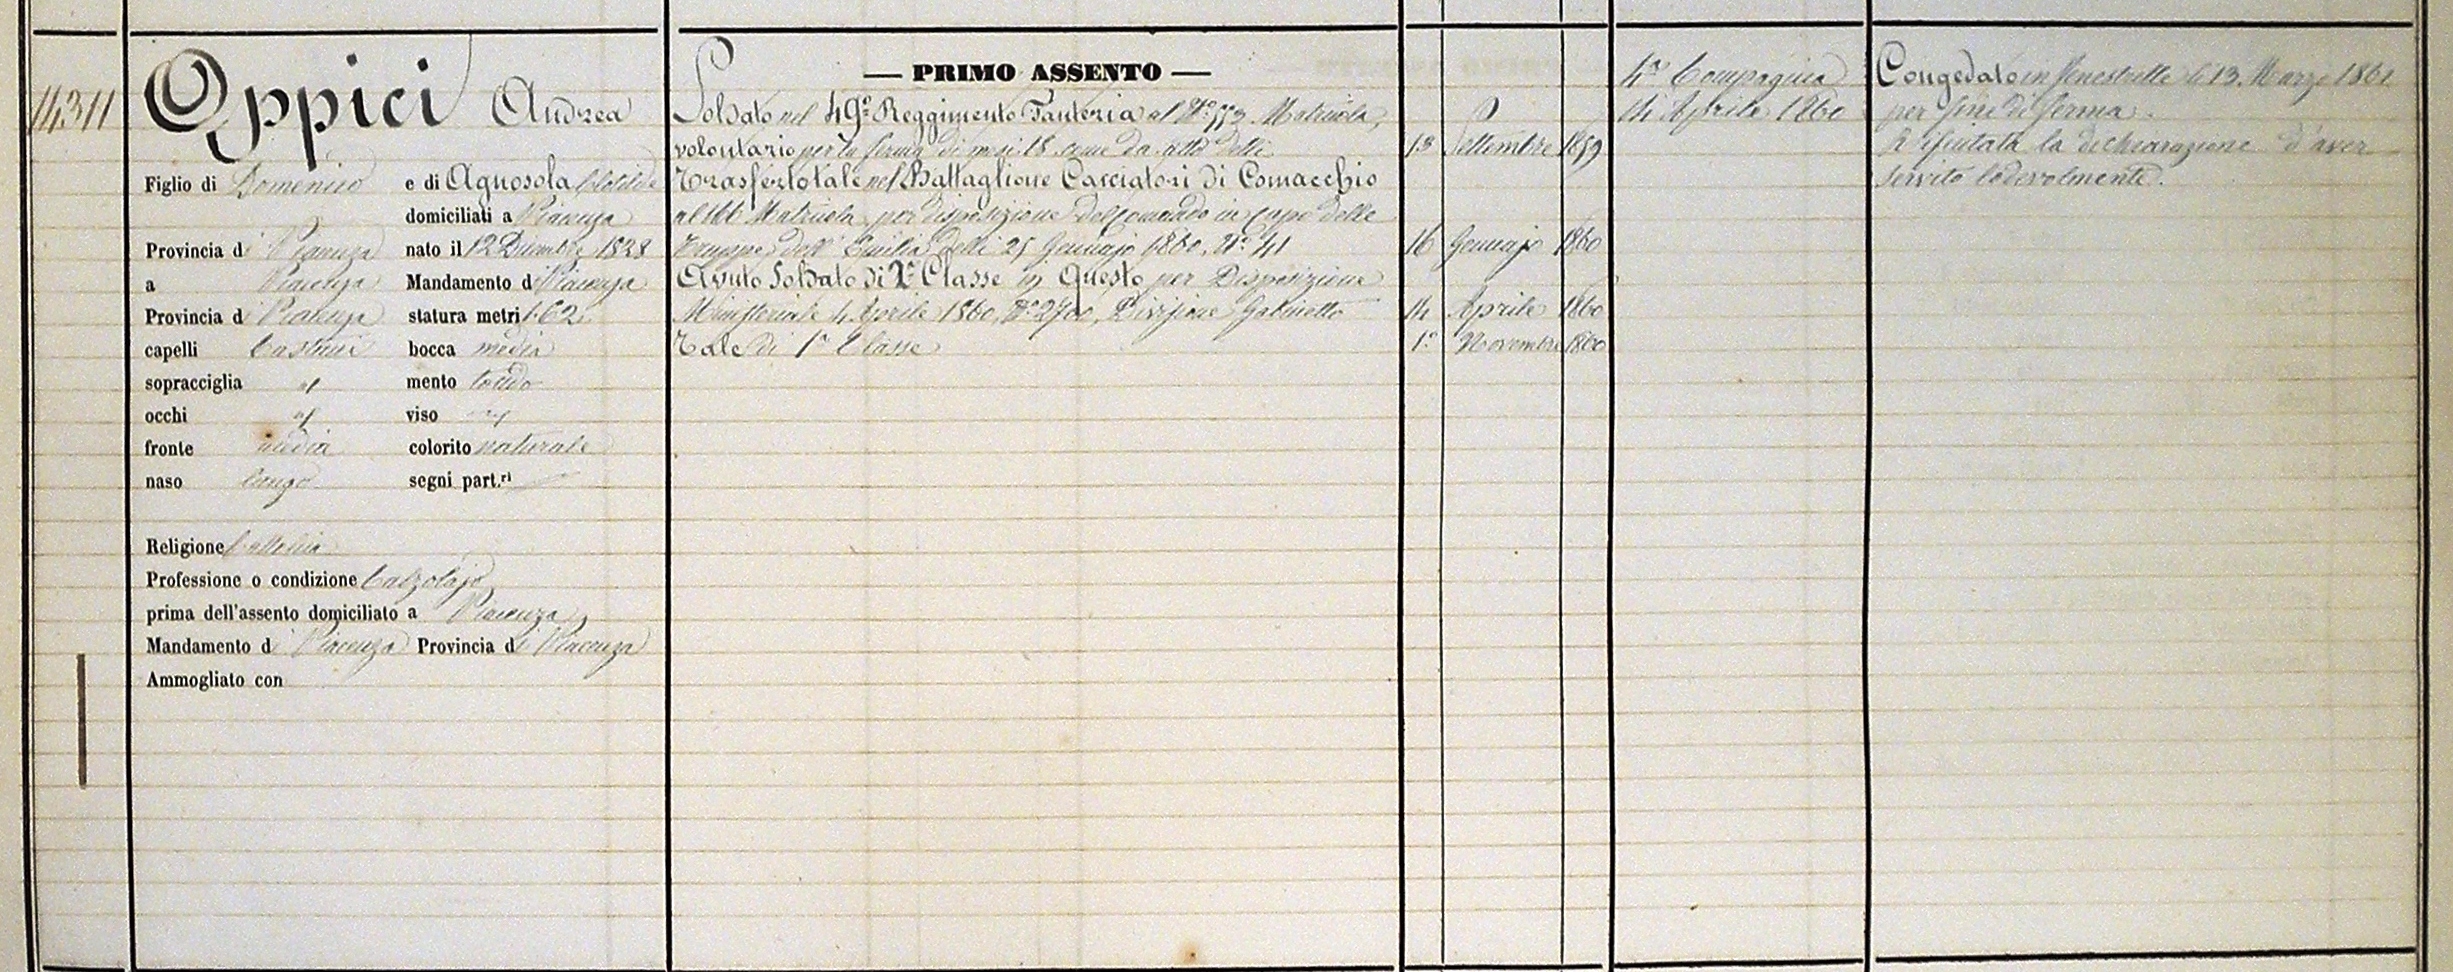 14311
Oppici Andrea
Figlio di Domenico e di Agnosola Clotilde
domiciliati a Piacenza
Provincia di Piacenza nato il 12 Dicembre 1828
a Piacenza Mandamento di Piacenza
Provincia di Piacenza statura metri 1.62.
capelli Castani bocca media
sopracciglia id mento tondo
occhi id viso id
fronte media colorito naturale
naso lungo segni part.ri
Religione Cattolica
Professione o condizione Calzolajo
prima dell'assento domiciliato a Piacenza
Mandamento di Piacenza Provincia di Piacenza
Ammogliato con
— PRIMO ASSENTO —
Soldato nel 49º Reggimento Fanteria al Nº 553 Matricola,
volontario per la ferma di mesi 18 come da atto delli 13 Settembre 1859
Trasferto tale nel Battaglione Cacciatori di Comacchio
al 166 Matricola per disposizione del Comando in Capo delle
Truppe dell'Emilia delli 25 Gennajo 1860, Nº 41 16 Gennajo 1860
Avuto Soldato di 2ª Classe in Questo per Disposizione
Ministeriale 4 Aprile 1860, Nº 2700, Divisione Gabinetto 14 Aprile 1860
Tale di 1ª Classe 1º Novembre 1860
4ª Compagnia
14 Aprile 1860
Congedato in Fenestrelle li 13. Marzo 1861
per fine di ferma.
Rifiutata la dichiarazione d'aver
servito lodevolmente.